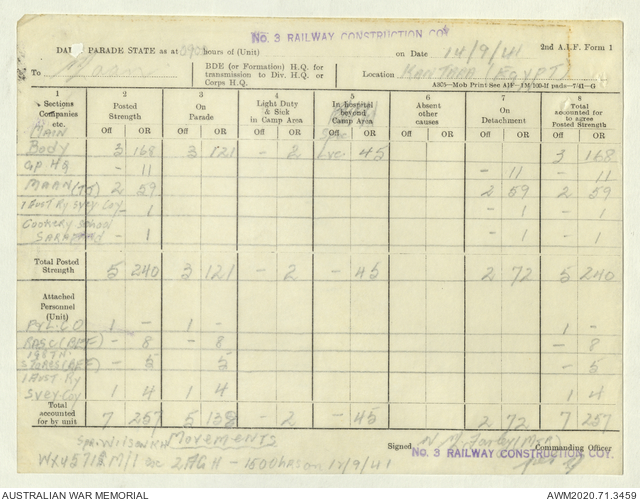 No. 3 RAILWAY CONSTRUCTION COY
DAILY PARADE STATE as at 0900 hours of (Unit) on Date 14/9/41 2nd A.I.F. Form 1
To BDE (or Formation) H.Q. for transmission to Div. H.Q. or Corps H.Q. Location KANTARA (EGYPT)
A375—Mob Print See AIF—1M/100-11 pads—7/41—G
1 2 3 4 5 6 7 8
Sections Companies etc. Posted Strength On Parade Light Duty & Sick in Camp Area In hospital beyond Camp Area Absent other causes On Detachment Total accounted for to agree Posted Strength
Off OR Off OR Off OR Off OR Off OR Off OR Off OR
MAIN
Body 3 168 3 121 - 2 45 3 168
Gp HQ - 11 - 11 - 11
MAAN (TJ) 2 59 2 59 2 59
1 Aust Ry Svey Coy - 1 - 1 - 1
Cookery School
SARAFAND - 1 - 1 - 1
Total Posted Strength 5 240 3 121 - 2 - 45 2 72 5 240
Attached Personnel (Unit)
1 - 1 - 1 -
RASC (BEF) - 8 - 8 - 8
STORES (BEF) - 5 5 - 5
1 Aust Ry
Svey Coy 1 4 1 4 1 4
Total accounted for by unit 7 257 5 138 - 2 - 45 2 72 7 257
Movements
Signed Commanding Officer
No. 3 RAILWAY CONSTRUCTION COY.
Spr Wilson
2 AGH - 1500 hrs on 13/9/41
AUSTRALIAN WAR MEMORIAL AWM2020.71.3459